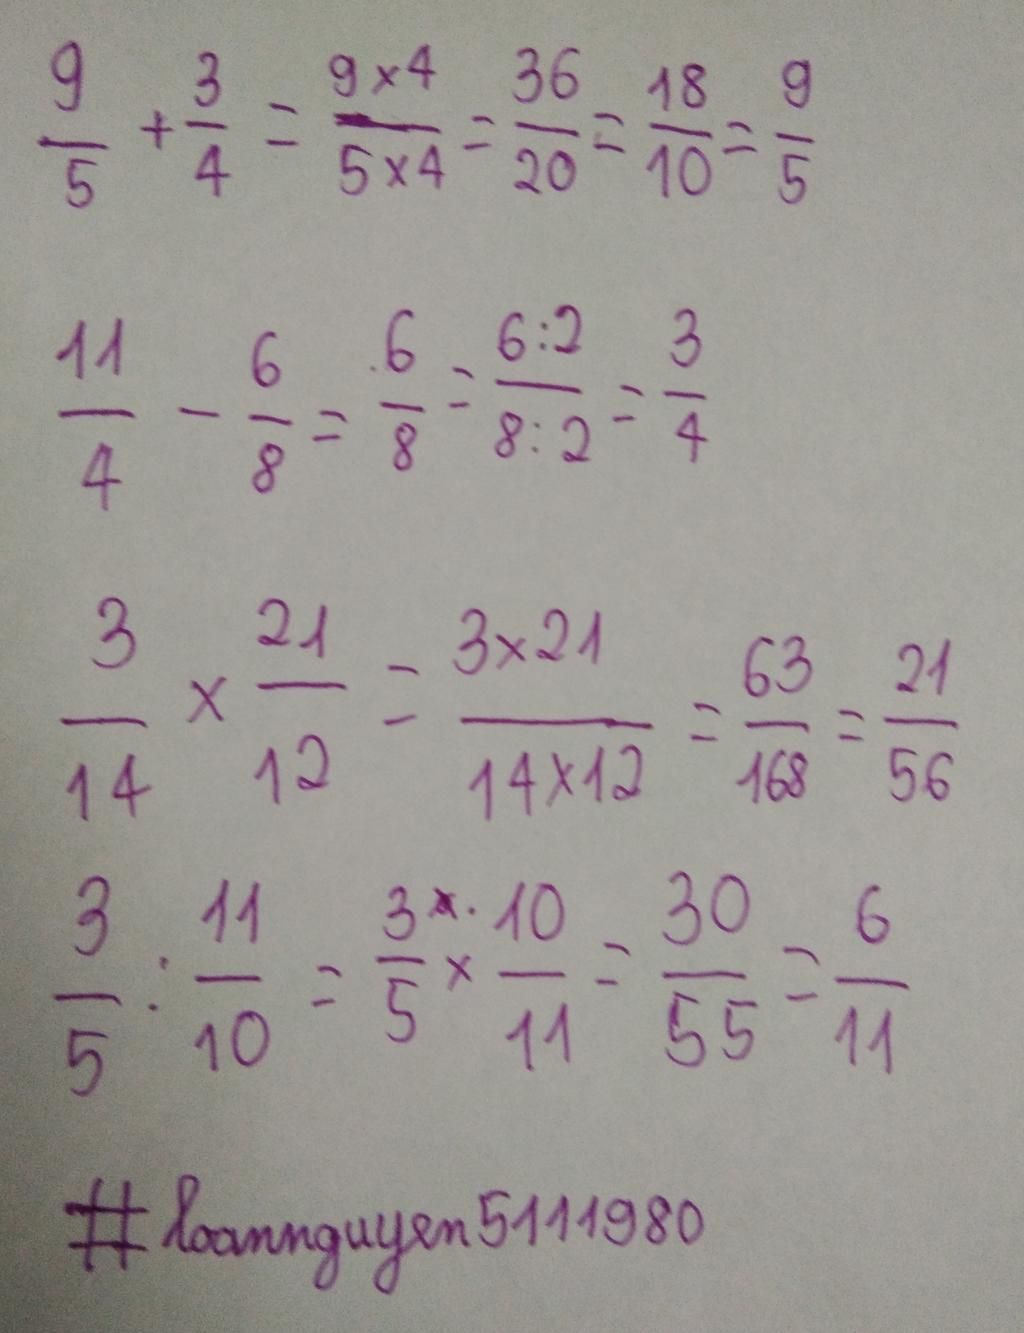 9/5 + 3/4 = 9×4/5×4 = 36/20 = 18/10 = 9/5
11/4 - 6/8 = 6/8 = 6:2/8:2 = 3/4
3/14 × 21/12 = 3×21/14×12 = 63/168 = 21/56
3/5 : 11/10 = 3/5 × 10/11 = 30/55 = 6/11
#loannguyen5111980